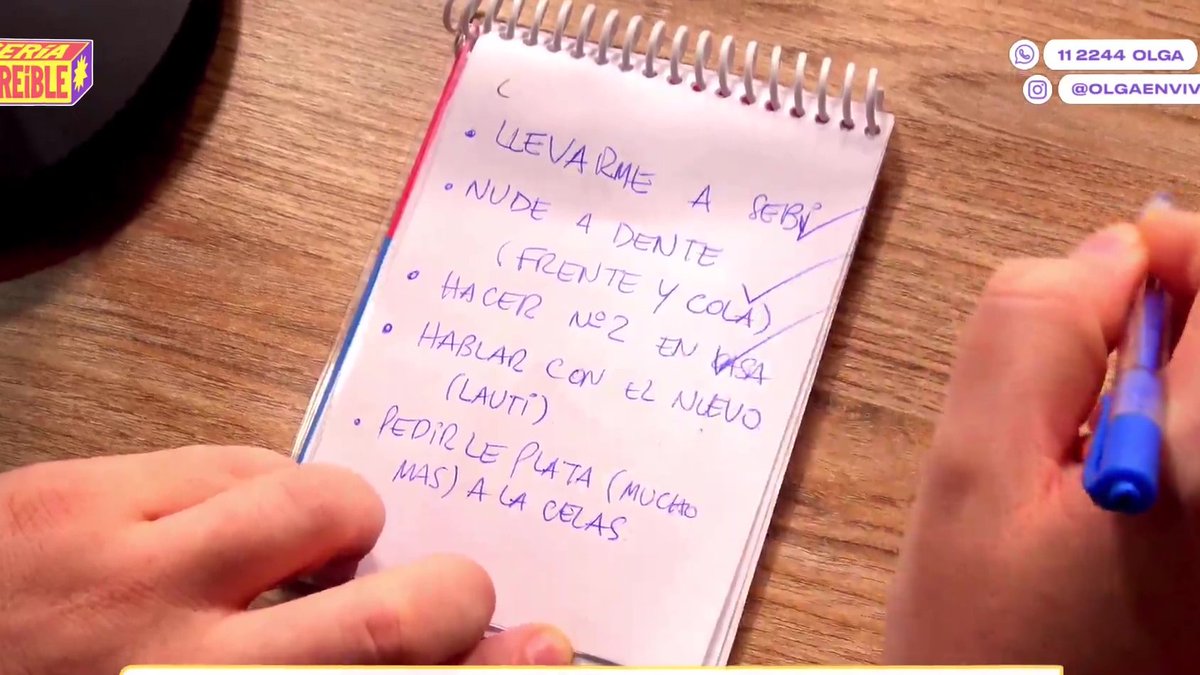 ERIA
REIBLE
11 2244 OLGA
@OLGAENVIV
• LLEVARME A SEBI
• NUDE A DENTE
(FRENTE Y COLA)
• HACER Nº2 EN CASA
• HABLAR CON EL NUEVO
(LAUTI)
• PEDIRLE PLATA (MUCHO
MAS) A LA CELAS